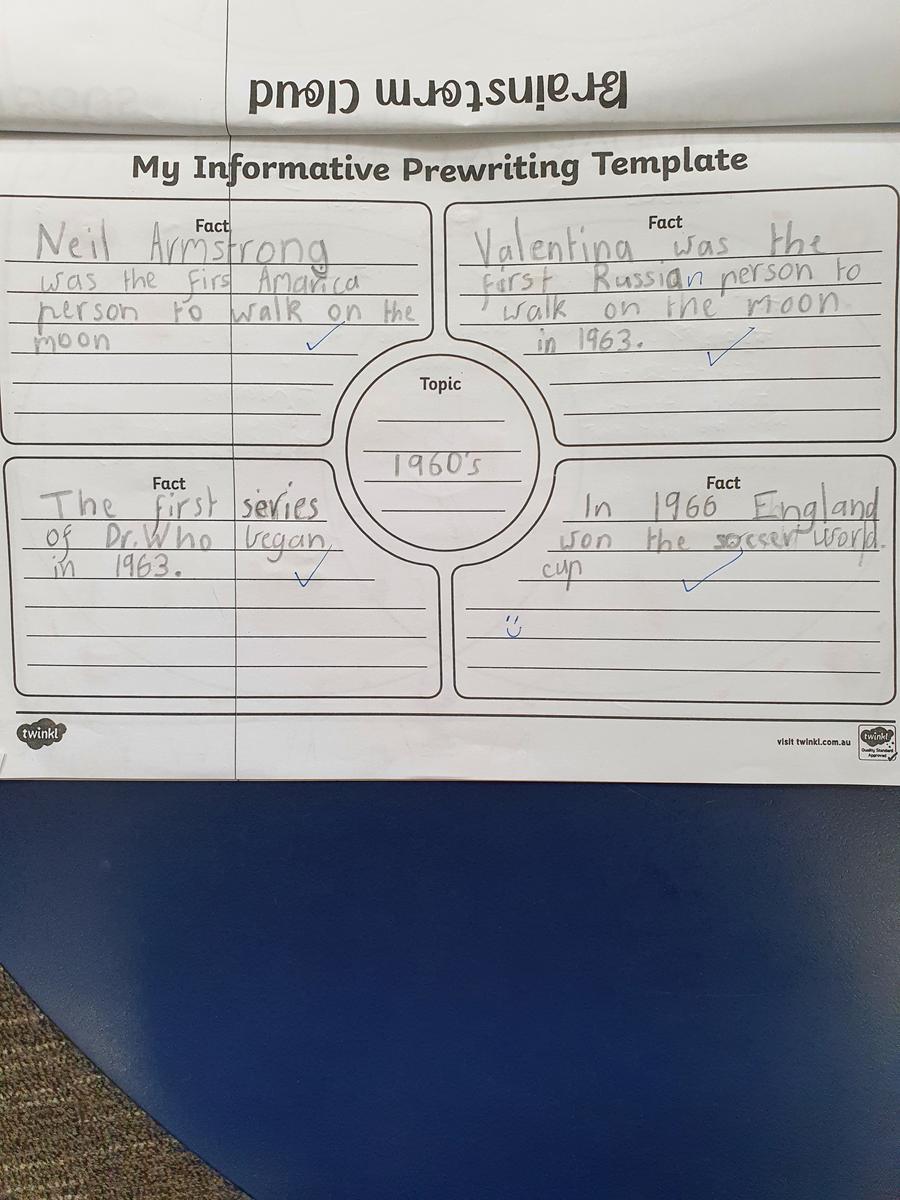 Brainstorm Cloud
My Informative Prewriting Template
Fact
Neil Armstrong
was the firs Amarica
person to walk on the
moon
Fact
Valentina was the
first Russian person to
walk on the moon
in 1963.
Topic
1960's
Fact
The first series
of Dr. Who began
in 1963.
Fact
In 1966 England
won the soccer world.
cup
twinkl
visit twinkl.com.au
twinkl
Quality Standard
Approved